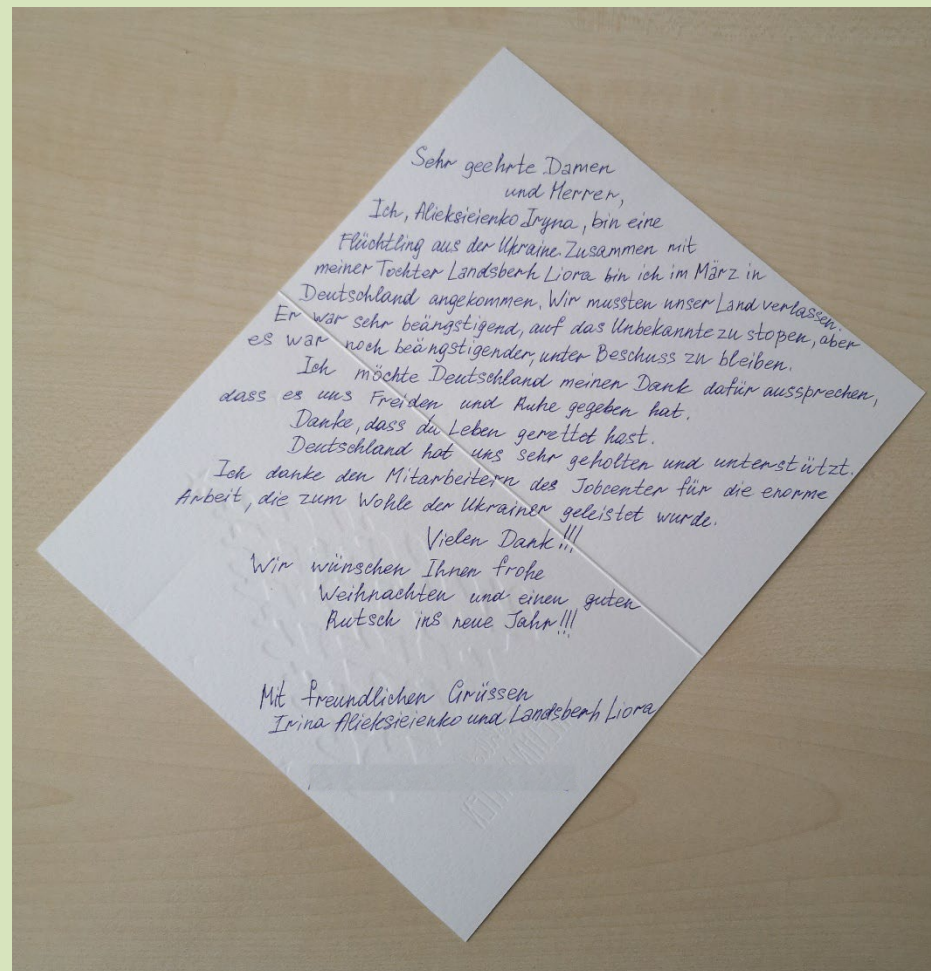 Sehr geehrte Damen
und Herren,
Ich, Alieksieienko Iryna, bin eine
Flüchtling aus der Ukraine. Zusammen mit
meiner Tochter Landsberh Liora bin ich im März in
Deutschland angekommen. Wir mussten unser Land verlassen.
Er war sehr beängstigend, auf das Unbekannte zu stopen, aber
es war noch beängstigender, unter Beschuss zu bleiben.
Ich möchte Deutschland meinen Dank dafür aussprechen,
dass es uns Freiden und Ruhe gegeben hat.
Danke, dass du Leben gerettet hast.
Deutschland hat uns sehr geholten und unterstützt.
Ich danke den Mitarbeitern des Jobcenter für die enorme
Arbeit, die zum Wohle der Ukrainer geleistet wurde.
Vielen Dank!!!
Wir wünschen Ihnen frohe
Weihnachten und einen guten
Rutsch ins neue Jahr!!!
Mit freundlichen Grüssen
Irina Alieksieienko und Landsberh Liora